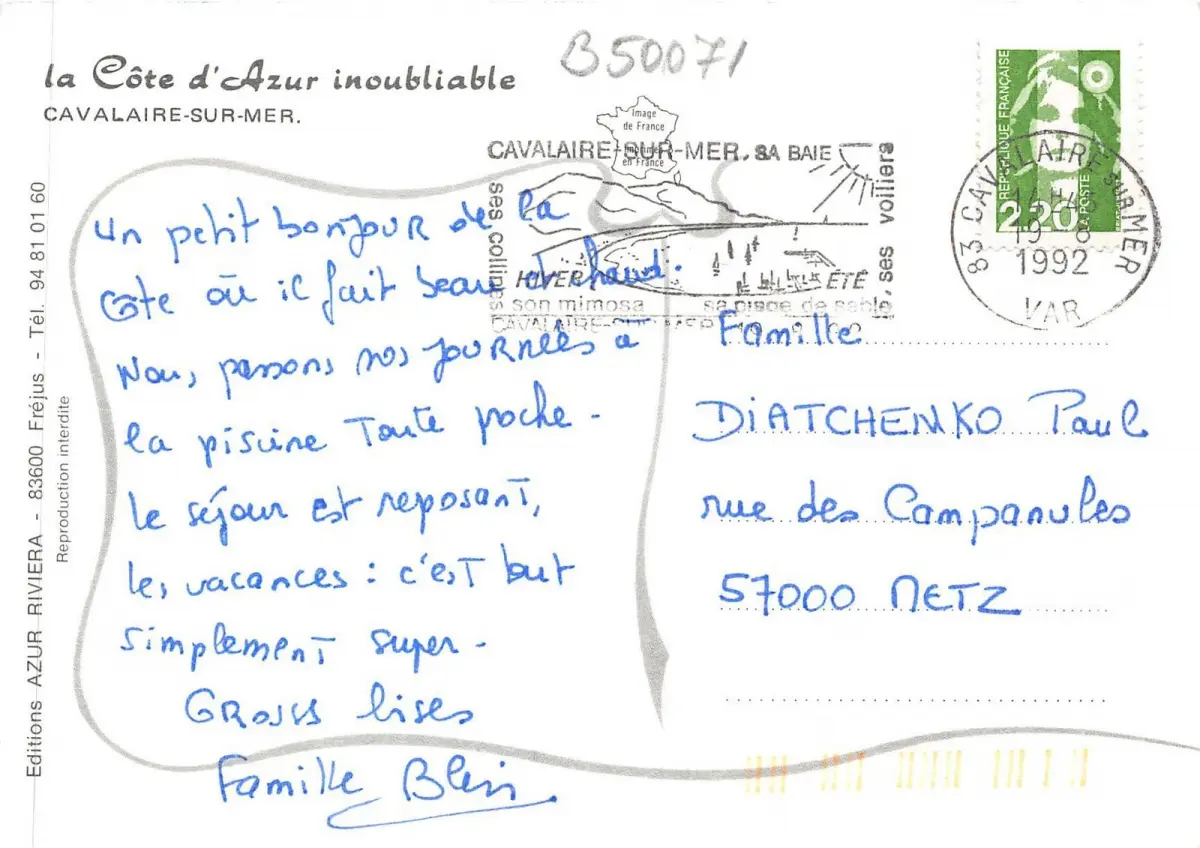 B50071
la Côte d'Azur inoubliable
CAVALAIRE-SUR-MER.
Image
de France
Imprimée
en France
CAVALAIRE-SUR-MER. SA BAIE
ses voiliers
ses collines
HIVER
son mimosa
ÉTÉ
sa plage de sable,
RÉPUBLIQUE FRANÇAISE
2,20
LA POSTE
83 CAVALAIRE SUR MER
19-8
1992
VAR
Un petit bonjour de la
Côte où il fait beau et chaud.
Nous passons nos journées à
la piscine toute proche -
Le séjour est reposant,
les vacances : c'est tout
simplement super -
Grosses bises
Famille Blein
Famille
DIATCHENKO Paul
rue des Campanules
57000 METZ
Editions AZUR RIVIERA - 83600 Fréjus - Tél. 94 81 01 60
Reproduction interdite